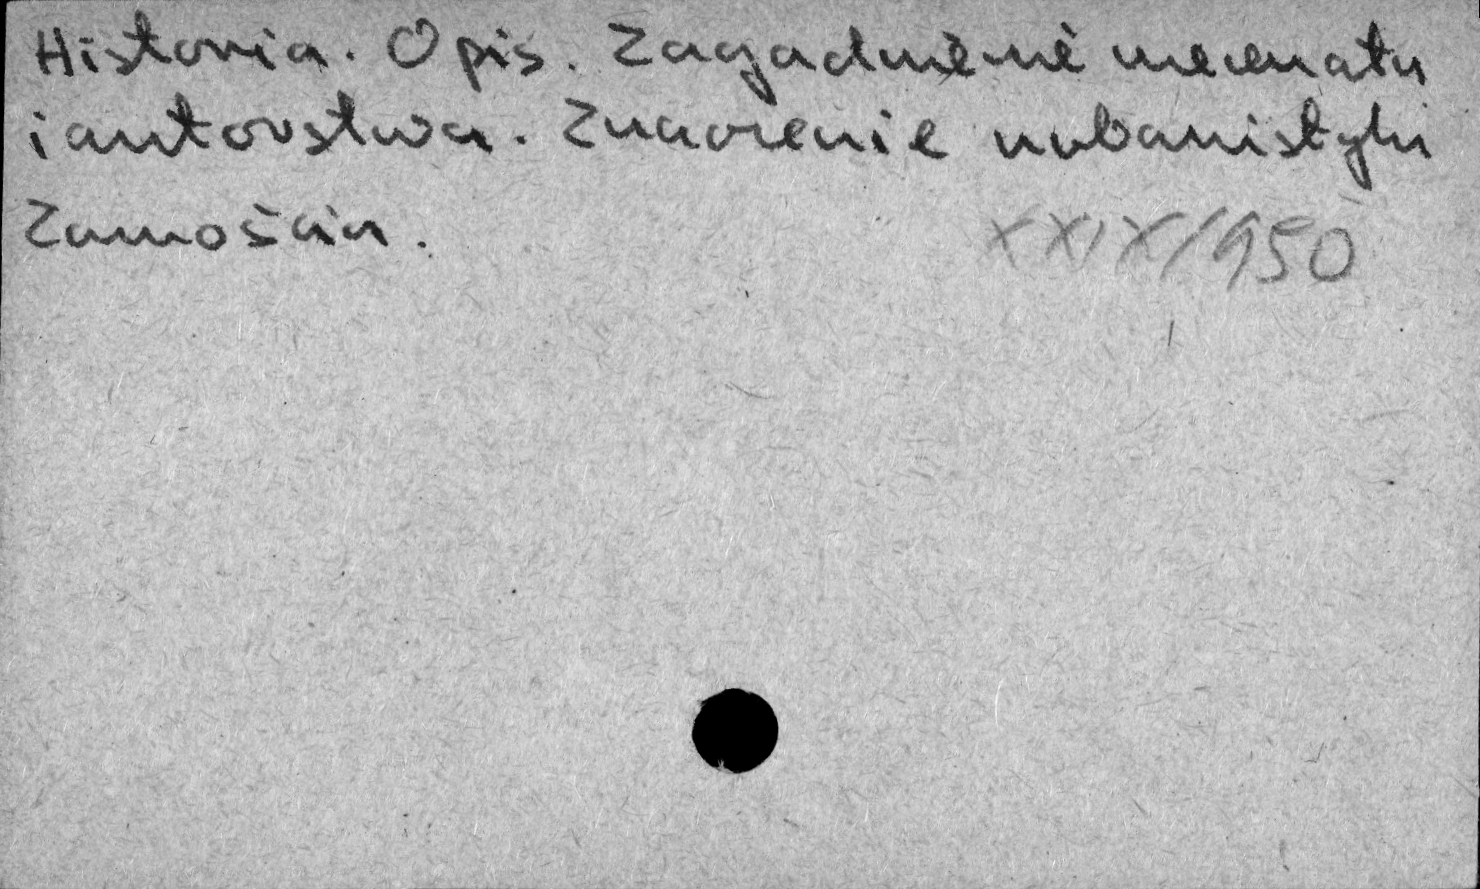 Historia. Opis. Zagadnienie mecenatu
i autorstwa. Znaczenie urbanistyki
Zamościa.
XXIX/950